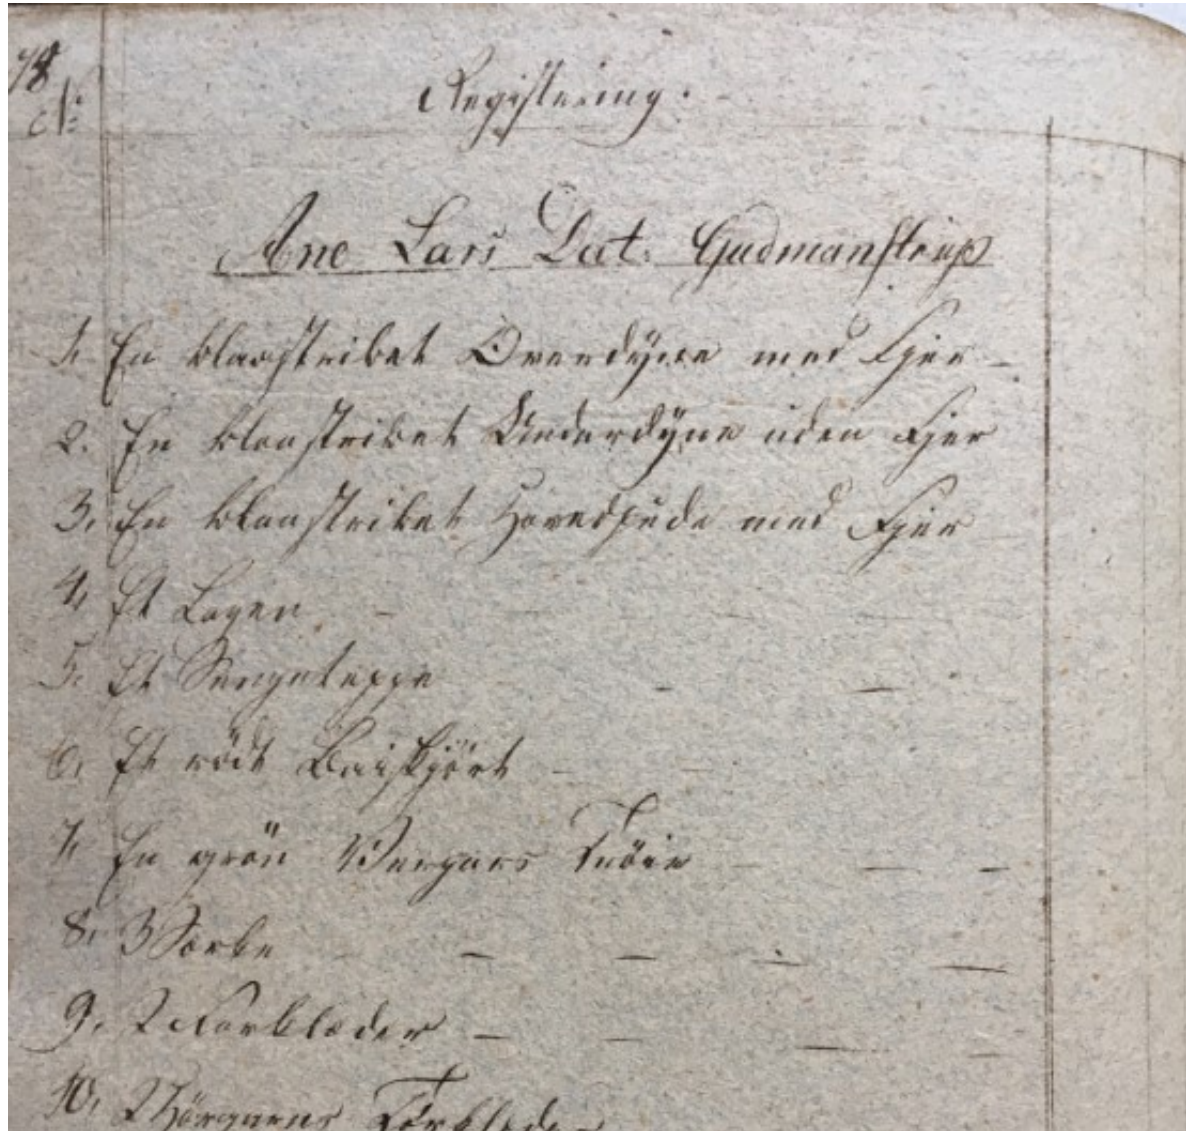 78
No:
Registering.
Ane Lars Dat: Gudmanstrup
1. En blaastribet Overdyne med Fjer
2. En blaastribet Underdyne uden Fjer
3. En blaastribet Hovedpude med Fjer
4, Et Lagen
5. Et Sengeteppe
6, Et rödt Baiskjört
7. En grön Vergarns Tröie
8, 3 Særke
9. 2 Forklæder
10, 2 Hörgarns Forklæder